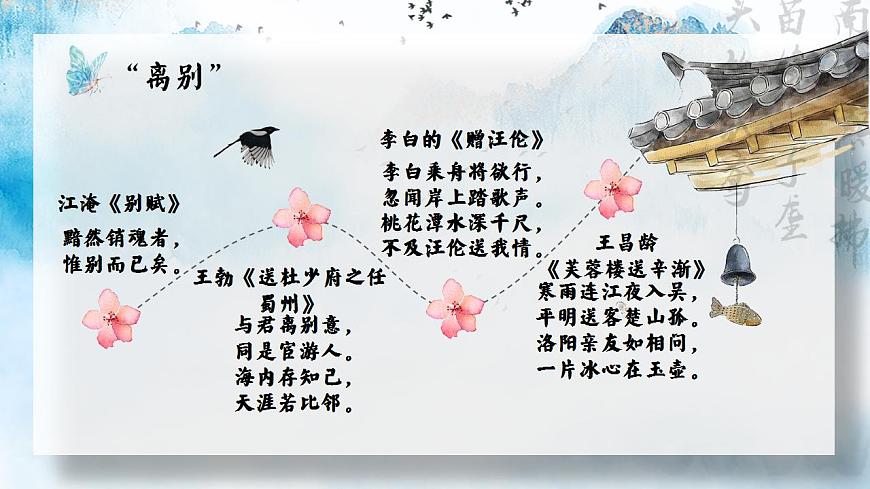 “离别”
江淹《别赋》
黯然销魂者，
惟别而已矣。
王勃《送杜少府之任
蜀州》
与君离别意，
同是宦游人。
海内存知己，
天涯若比邻。
李白的《赠汪伦》
李白乘舟将欲行，
忽闻岸上踏歌声。
桃花潭水深千尺，
不及汪伦送我情。
王昌龄
《芙蓉楼送辛渐》
寒雨连江夜入吴，
平明送客楚山孤。
洛阳亲友如相问，
一片冰心在玉壶。